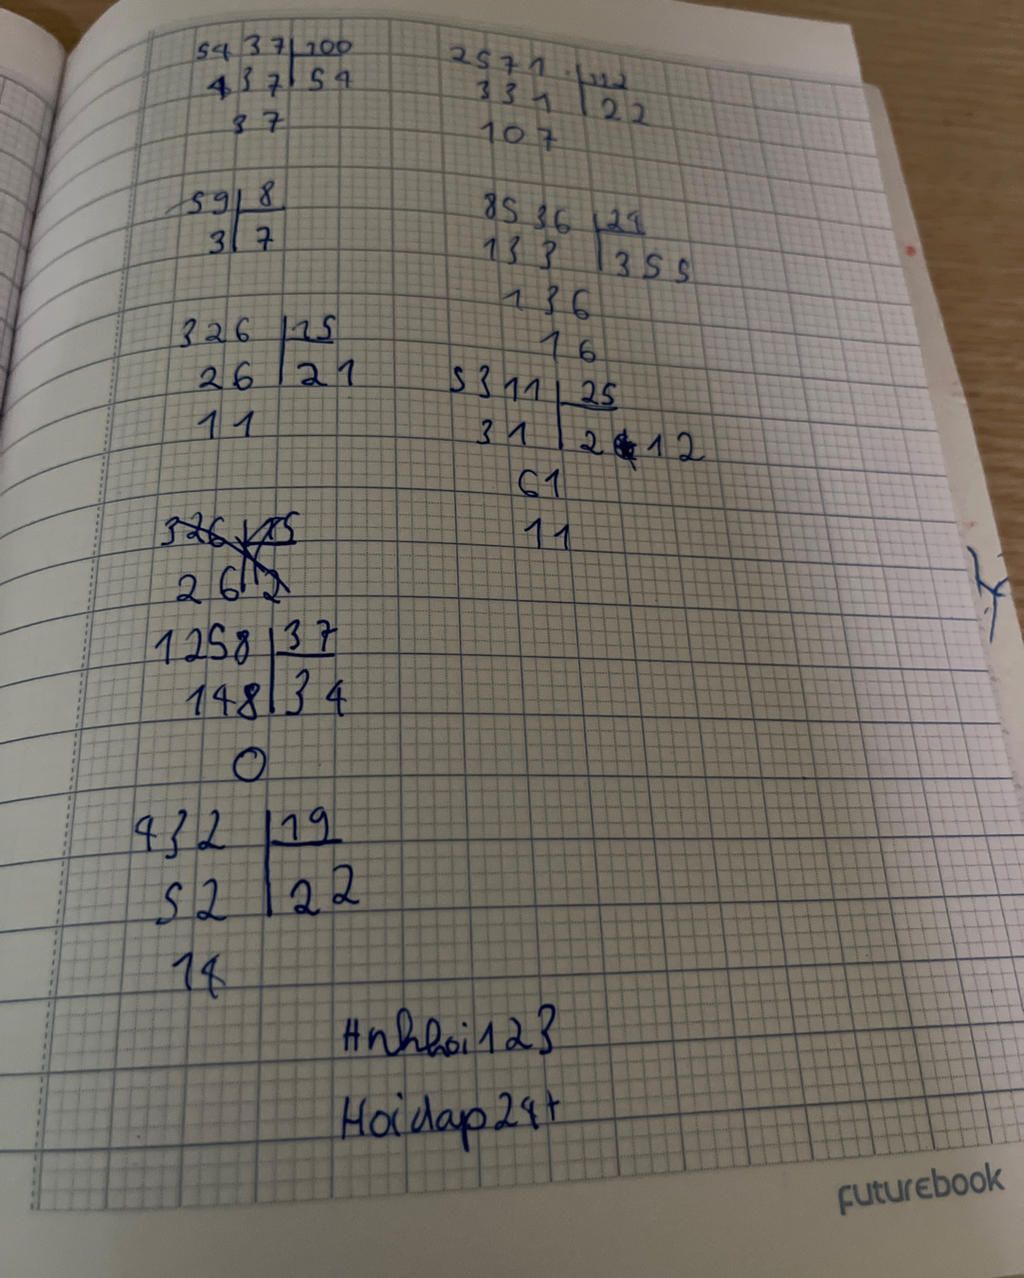 5437 100
437 54
37
59 8
3 7
326 15
26 21
11
326 15
26 2
1258 37
148 34
0
432 19
52 22
14
2571 112
331 22
107
8536 24
133 355
136
16
5311 25
31 212
61
11
Hnhhoi123
Hoidap24+
FUTUREBOOK